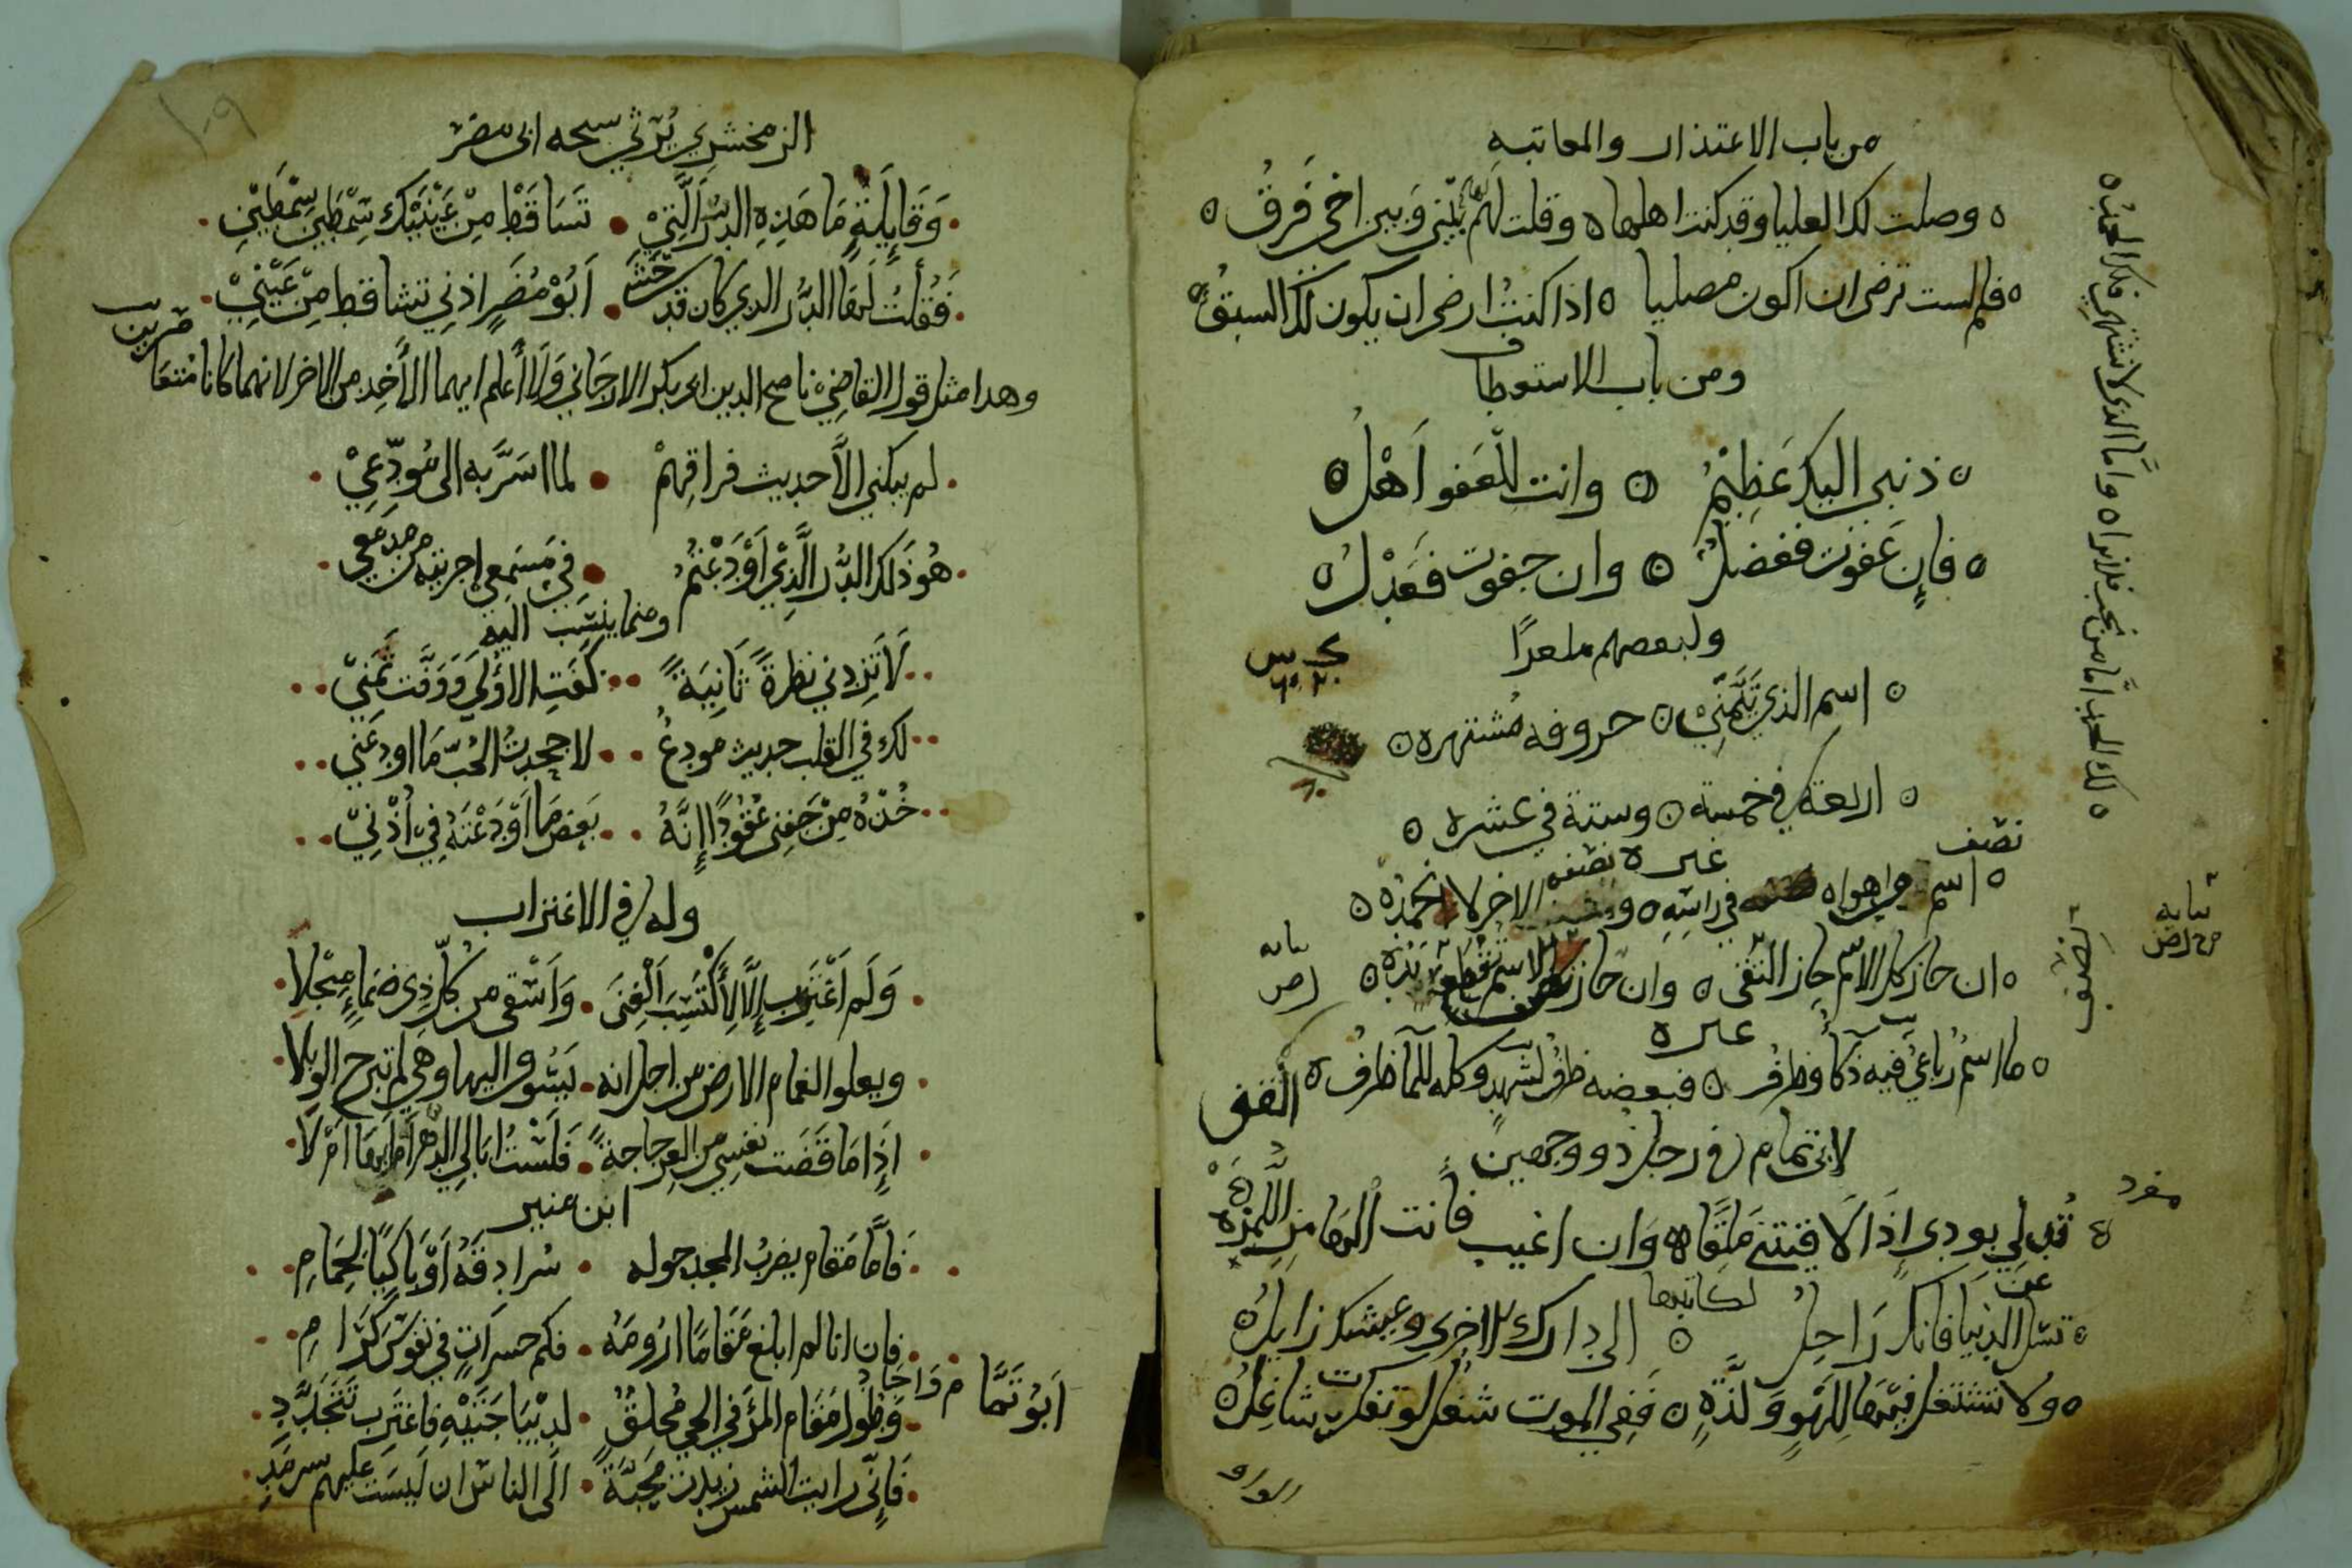 من باب الاعتذار والمعاتبه
وصلت لك العليا وقد كنت اهلها ه وقلت لهم بيني وبين اخي فرق ه
فلم لست ترضى ان اكون مصليا ه اذا كنت ارضى ان يكون لك السبق
ومن باب الاستعطاف
ه ذنبي اليك عظيم ه وانت للعفو اهل ه
ه فان عفوت ففضل ه وان جفوت فعدل ه
ولبعضهم ملغزا
ه اسم الذي تيمني ه حروفه مشتهره ه
ه اربعة في خمسة ه وستة في عشره ه
غيره
ه اسم من اهواه في راسه ه الاخر لا
ه ان حاز كل الاسم حاز التقى ه وان حاز
غيره
ه ما اسم رباعي فيه ذكا وظرف ه فبعضه ظرف لشهد وكله للما ظرف ه
لابي تمام في رجل ذو وجهين
تدلي بودي اذا لاقيتني ملقا ه وان اغيب فانت الهامز اللمزه
لكاتبها
ه تسل عن الدنيا فانك راحل ه الى دارك الاخرى وعيشك زايل ه
ه ولا تشتغل فيها للهو ولذة ه ففي الموت شغل لو تفكرت شاغل ه
مفرد
لك الحب اما من تحب فلا تراه واما الذي لا تشتهي فلك العبد ه
الزمخشري يرثي شيخه ابي مضر
وقايلة ما هذه الدرر التي • تساقط من عينيك سمطين سمطين
فقلت لها الدر الذي كان قد حشى • ابو مضر اذني تساقط من عيني
وهدا مثل قول القاضي ناصح الدين ابي بكر الارجاني ولا أعلم ايهما الأخد من الاخر لانهما كانا متعاصرين
لم يبكني الا حديث فراقهم • لما اسر به الى مودعي
هو ذلك الدر الذي اودعتم • في مسمعي اجريته من مدمعي
ومما ينسب اليه
لا تزدني نظرة ثانية •• كفت الاولى ووفت ثمني
لك في القلب حديث مودع •• لا جحدت الحب ما اودعني
خذه من جفني عقودا إنه •• بعض ما اودعته في أذني
وله في الاغتراب
ولم اغترب إلا لأكتسب الغنى • واسقي من كل ذي ضماء سجلا
ويعلو الغمام الارض من اجل انه • يسوق اليها وهي لم تبرح الوبلا
إذا ما قضت نفسي من العز حاجة • فلست ابالي الدهر املى لها ام لا
ابن منير
فاما مقام يضرب المجد حوله • سرادقه أو باكيا لحمام
فان انا لم ابلغ مقاما ارومه • فكم حسرات في نفوس كرام
ابو تمام واجاد
وطول مقام المرء في الحي مخلق • لديباجتيه فاغترب تتجدد
فاني رايت الشمس زيدت محبة • الى الناس ان ليست عليهم سرمد